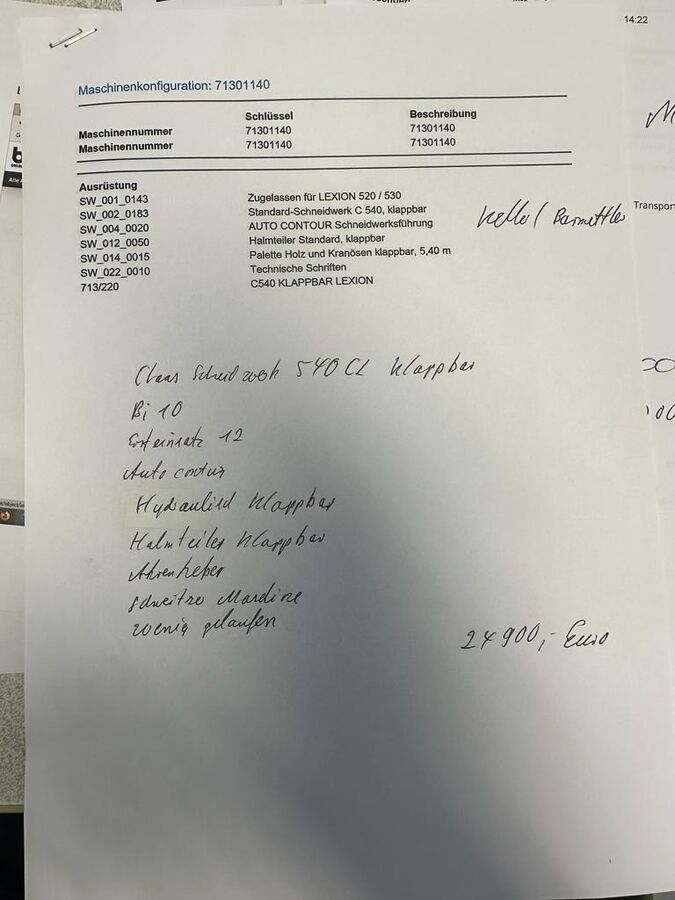 14:22
Maschinenkonfiguration: 71301140
Schlüssel Beschreibung
Maschinennummer 71301140 71301140
Maschinennummer 71301140 71301140
Ausrüstung
SW_001_0143 Zugelassen für LEXION 520 / 530
SW_002_0183 Standard-Schneidwerk C 540, klappbar
SW_004_0020 AUTO CONTOUR Schneidwerksführung
SW_012_0050 Halmteiler Standard, klappbar
SW_014_0015 Palette Holz und Kranösen klappbar, 5,40 m
SW_022_0010 Technische Schriften
713/220 C540 KLAPPBAR LEXION
Barmettler
Transpor
Claas 540 CL Klappbar
Bj 10
Ersteinsatz 12
Auto contur
Hydraulisch Klappbar
Halmteiler Klappbar
Ahrenheber
schweitzer
wenig gelaufen
24900,- Euro